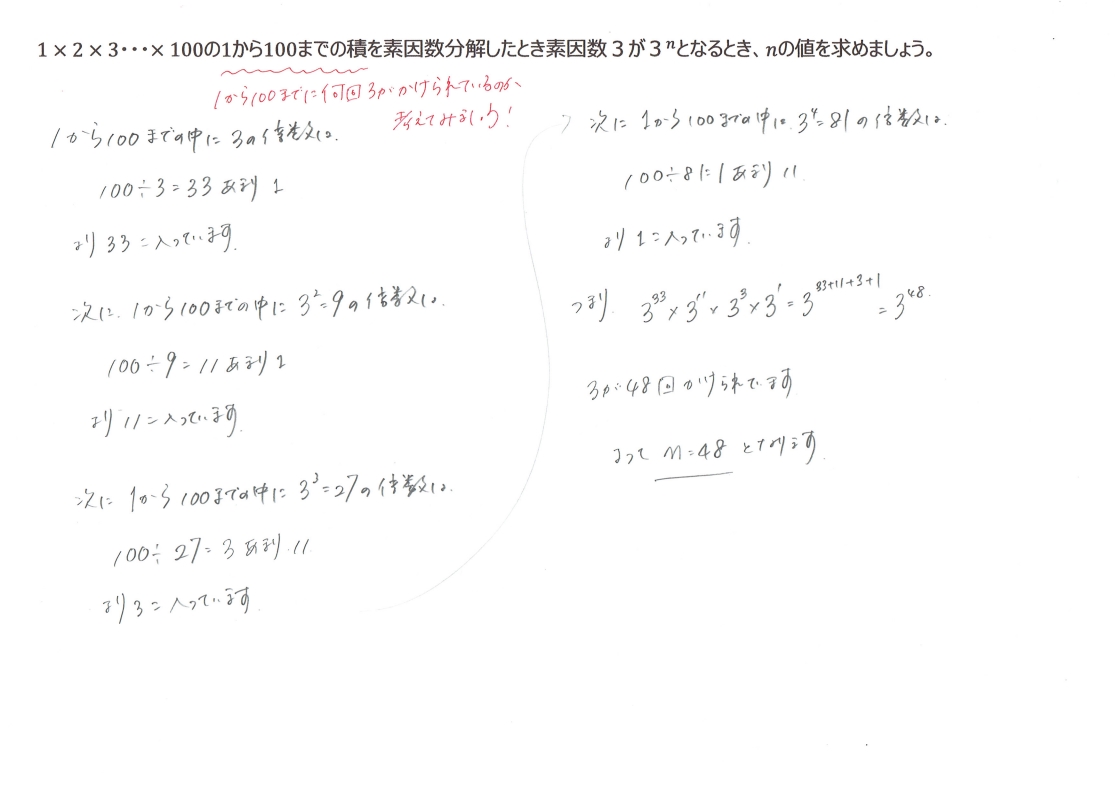 1×2×3・・・×100の1から100までの積を素因数分解したとき素因数3が3ⁿとなるとき、nの値を求めましょう。
1から100までに何回3がかけられているのか、
考えてみましょう!
1から100までの中に3の倍数は、
100÷3=33あまり1
より33こ入っています。
次に、1から100までの中に3²=9の倍数は、
100÷9=11あまり1
より11こ入っています。
次に1から100までの中に3³=27の倍数は、
100÷27=3あまり11
より3こ入っています。
次に1から100までの中に3⁴=81の倍数は、
100÷81=1あまり11
より1こ入っています。
つまり、3³³×3¹¹×3³×3¹=3³³⁺¹¹⁺³⁺¹
=3⁴⁸
3が48回かけられています
よってn=48となります。